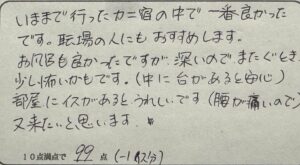 いままで行ったカニ宿の中で一番良かった
です。職場の人にもおすすめします。
お風呂も良かったですが、深いのでまたぐとき
少し怖いかもです。(中に台があると安心)
部屋にイスがあるとうれしいです(腰が痛いので)
又来たいと思います。
10点満点で 99 点 (-1はイス分)